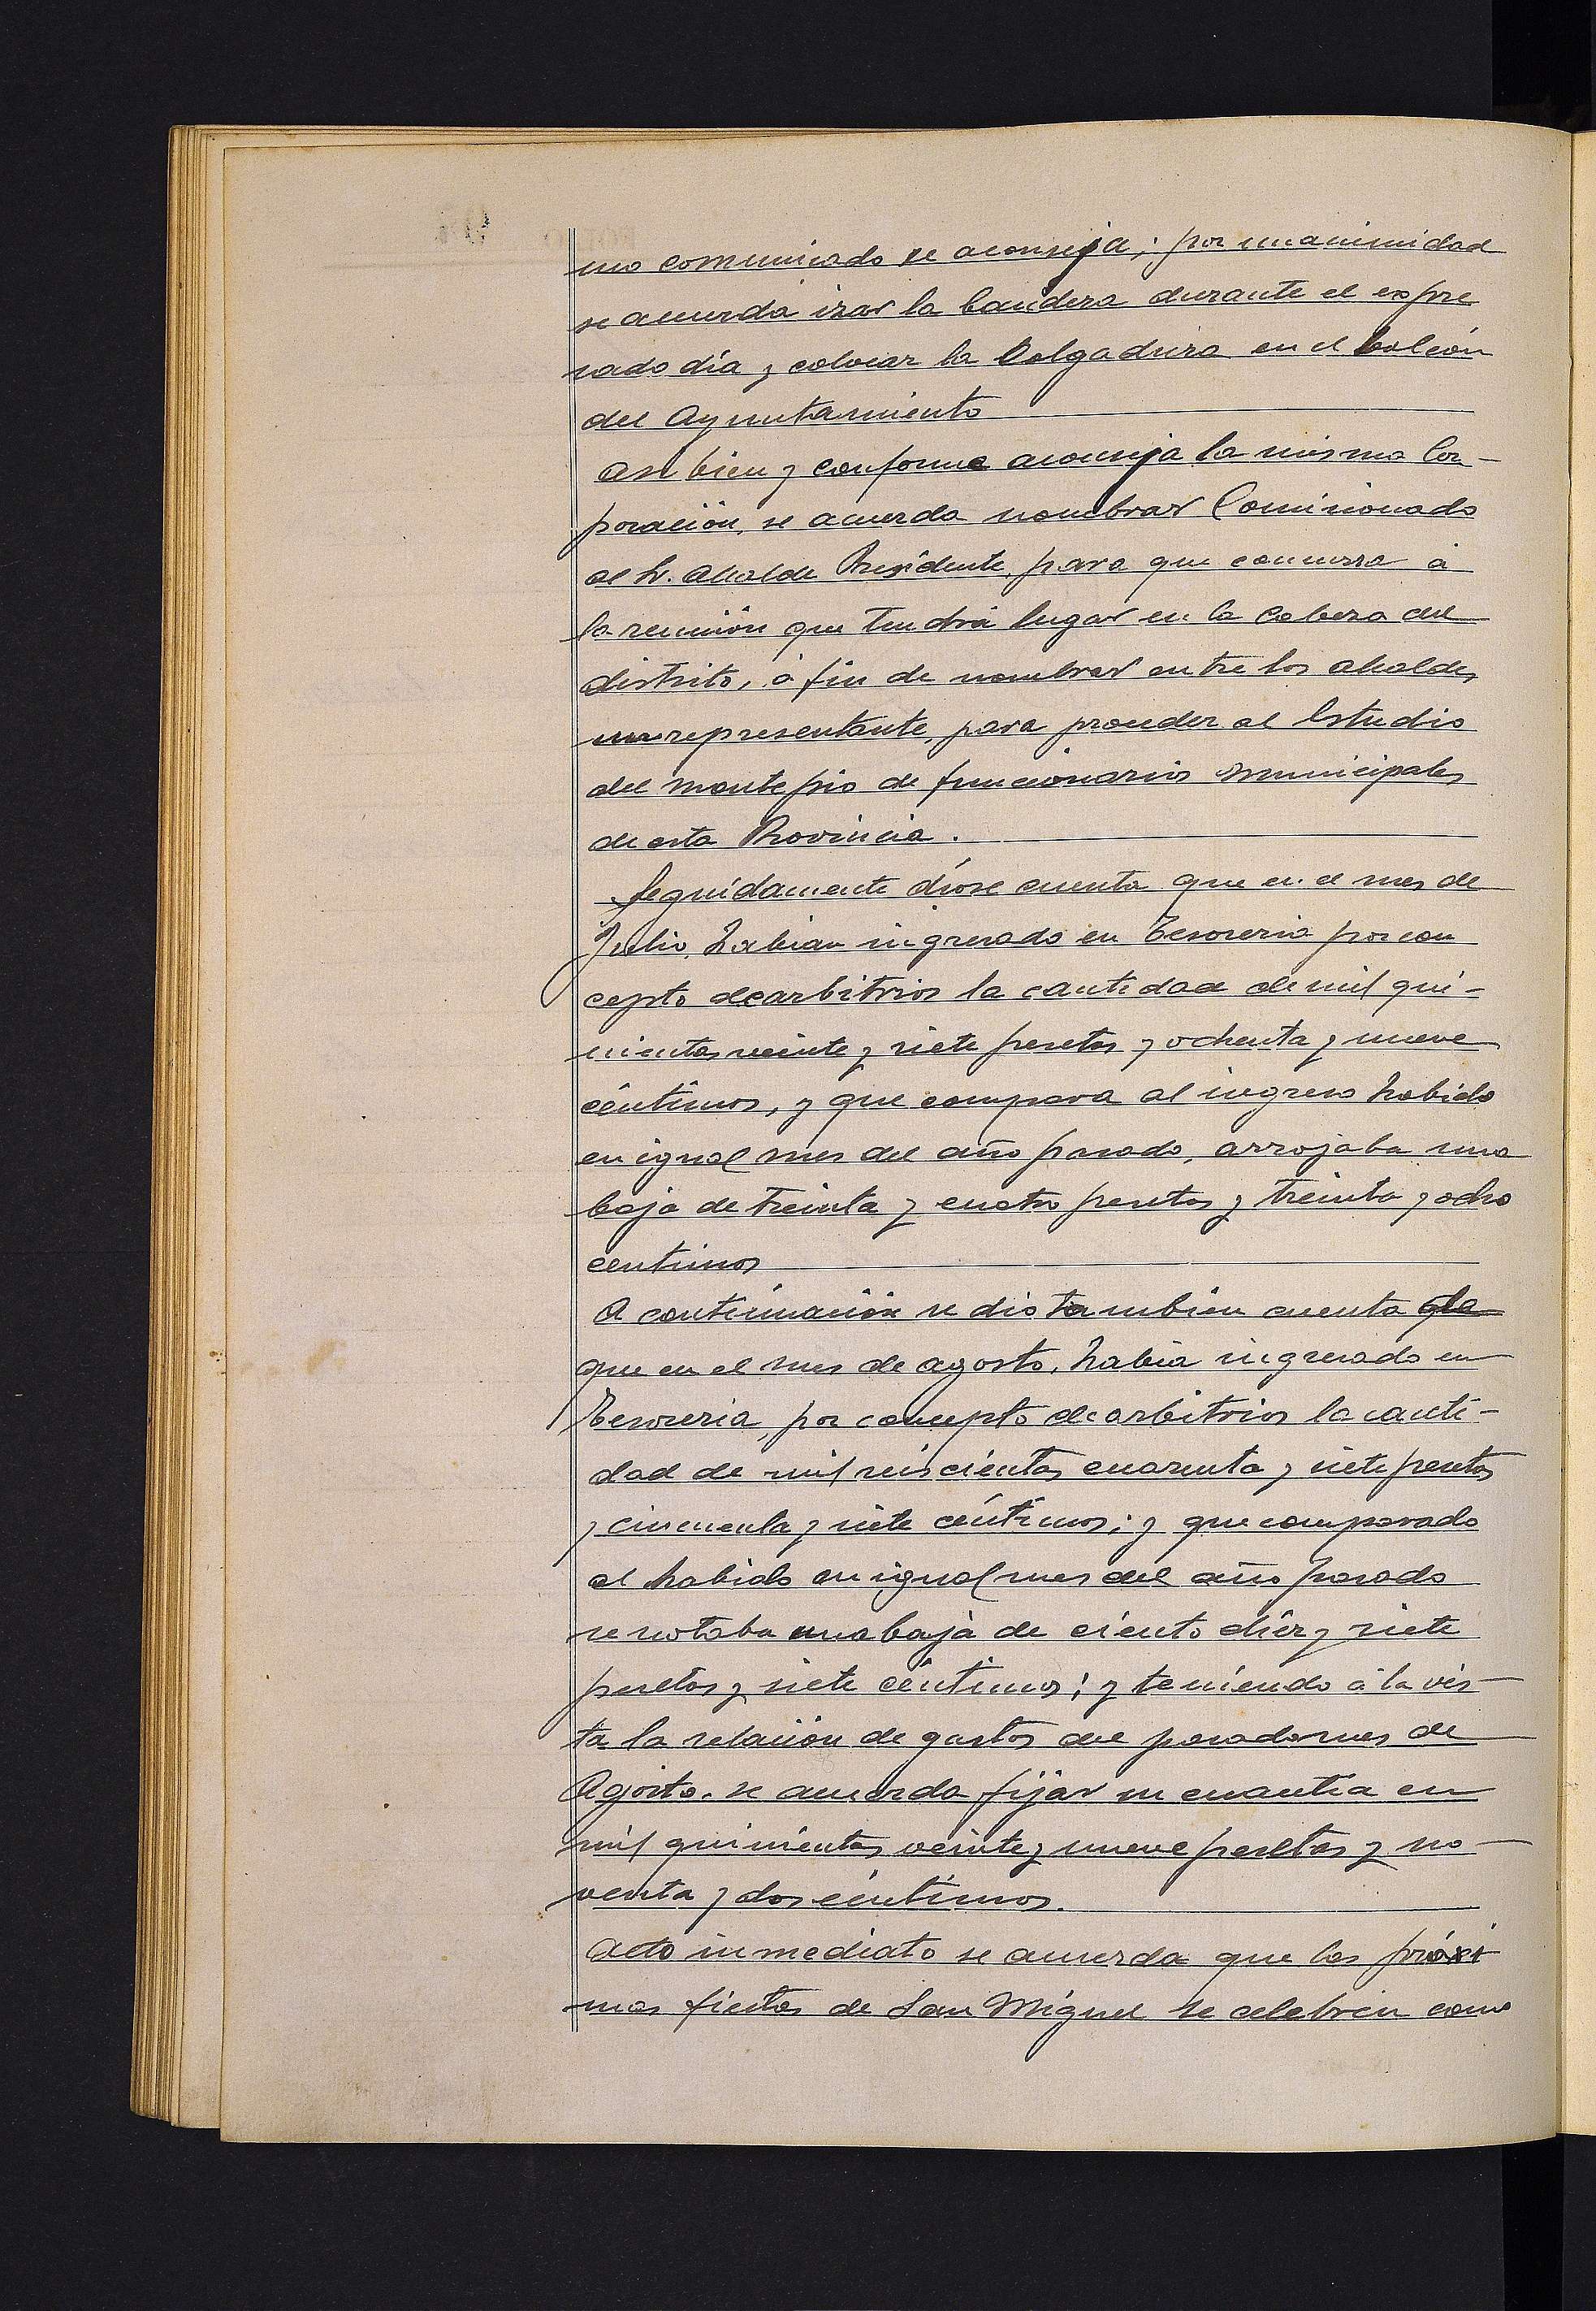 mo comunicado se aconseja; por unanimidad
se acuerda izar la bandera durante el expre
sado día y colocar la Colgadura en el balcón
del Ayuntamiento
Asi bien y conforme aconseja la misma Cor-
poración, se acuerda nombrar Comisionado
al Sr. Alcalde Presidente, para que concurra á
la reunión que tendrá lugar en la Cabeza del
distrito, á fin de nombrar entre los alcaldes
un representante, para proceder al Estudio
del montepio de funcionarios municipales
de esta Provincia.
Seguidamente dióse cuenta que en el mes de
Julio, habian ingresado en Tesoreria por con
cepto de arbitrios la cantidad de mil qui-
nientas veinte y siete pesetas y ochenta y nueve
céntimos, y que compara al ingreso habido
en igual mes del año pasado, arrojaba una
baja de treinta y cuatro pesetas y treinta y ocho
centimos
A continuación se dio tambien cuenta de
que en el mes de agosto, habia ingresado en
Tesoreria, por concepto de arbitrios la canti-
dad de mil seiscientas cuarenta y siete pesetas
y cincuenta y siete céntimos; y que comparado
al habido en igual mes del año pasado
se notaba una baja de ciento diez y siete
pesetas y siete céntimos; y teniendo á la vis-
ta la relación de gastos del pasado mes de
Agosto. se acuerda fijar su cuantia en
mil quinientas veinte y nueve pesetas y no-
venta y dos céntimos.
Acto inmediato se acuerda que las próxi
mas fiestas de San Miguel se celebren como